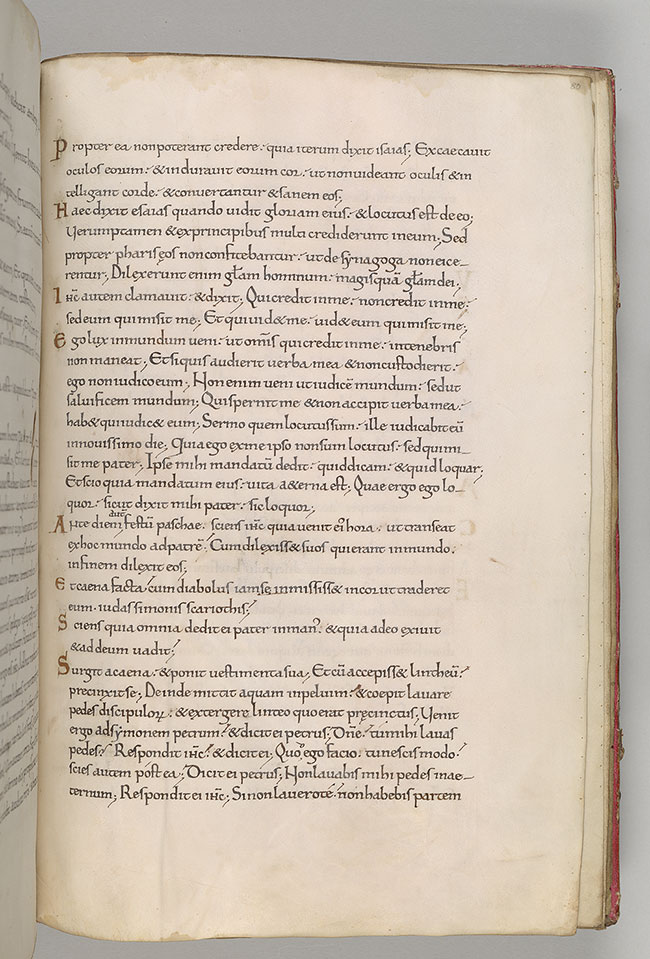 80
Propter ea non poterant credere. quia iterum dixit isaias; Excaecavit
oculos eorum. & induravit eorum cor. ut non videant oculis & in
telligant corde. & convertantur & sanem eos;
Haec dixit esaias quando vidit gloriam eius. & locutus est de eo;
Verumptamen & ex principibus multi crediderunt in eum; Sed
propter phariseos non confitebantur. ut de synagoga non eice
rentur; Dilexerunt enim głam hominum. magis quā głam dei;
ihc autem clamavit. & dixit; Qui credit in me. non credit in me.
sed eum qui misit me; Et qui vid& me. vid& eum qui misit me;
Ego lux in mundum veni. ut omis qui credit in me. in tenebris
non maneat; Et si quis audierit verba mea & non custodierit.
ego non iudico eum; Non enim veni ut iudicē mundum. sed ut
salvificem mundum; Qui spernit me & non accipit verba mea.
hab& qui iudic& eum; Sermo quem locutus sum. ille iudicabit eū
in novissimo die; Quia ego ex me ipso non sum locutus. sed qui mi
sit me pater; Ipse mihi mandatū dedit. quid dicam. & quid loquar;
Et scio quia mandatum eius. vita aeterna est; Quae ergo ego lo
quor. sicut dixit mihi pater. sic loquor;
Ante diem festū paschae. sciens ihc quia venit ei hora. ut transeat
ex hoc mundo ad patrē. Cum dilexiss& suos qui erant in mundo.
in finem dilexit eos;
Et caena facta. cum diabolus iam se inmisiss& in cor ut traderet
eum. iudas simonis scariothis;
Sciens quia omnia dedit ei pater in man. & quia a deo exivit
& ad deum vadit;
Surgit a caena. & ponit vestimenta sua; Et cū accepiss& linteū.
precinxit se; Deinde mittit aquam in pelvim. & coepit lavare
pedes discipulorum. & extergere linteo quo erat precinctus; Venit
ergo ad symonem petrum. & dicit ei petrus; Dne. tu mihi lavas
pedes; Respondit ihc. & dicit ei; Quo ego facio. tu nescis modo.
scies autem postea; Dicit ei petrus; Non lavabis mihi pedes in ae
ternum; Respondit ei ihc; Si non lavero te. non habebis partem